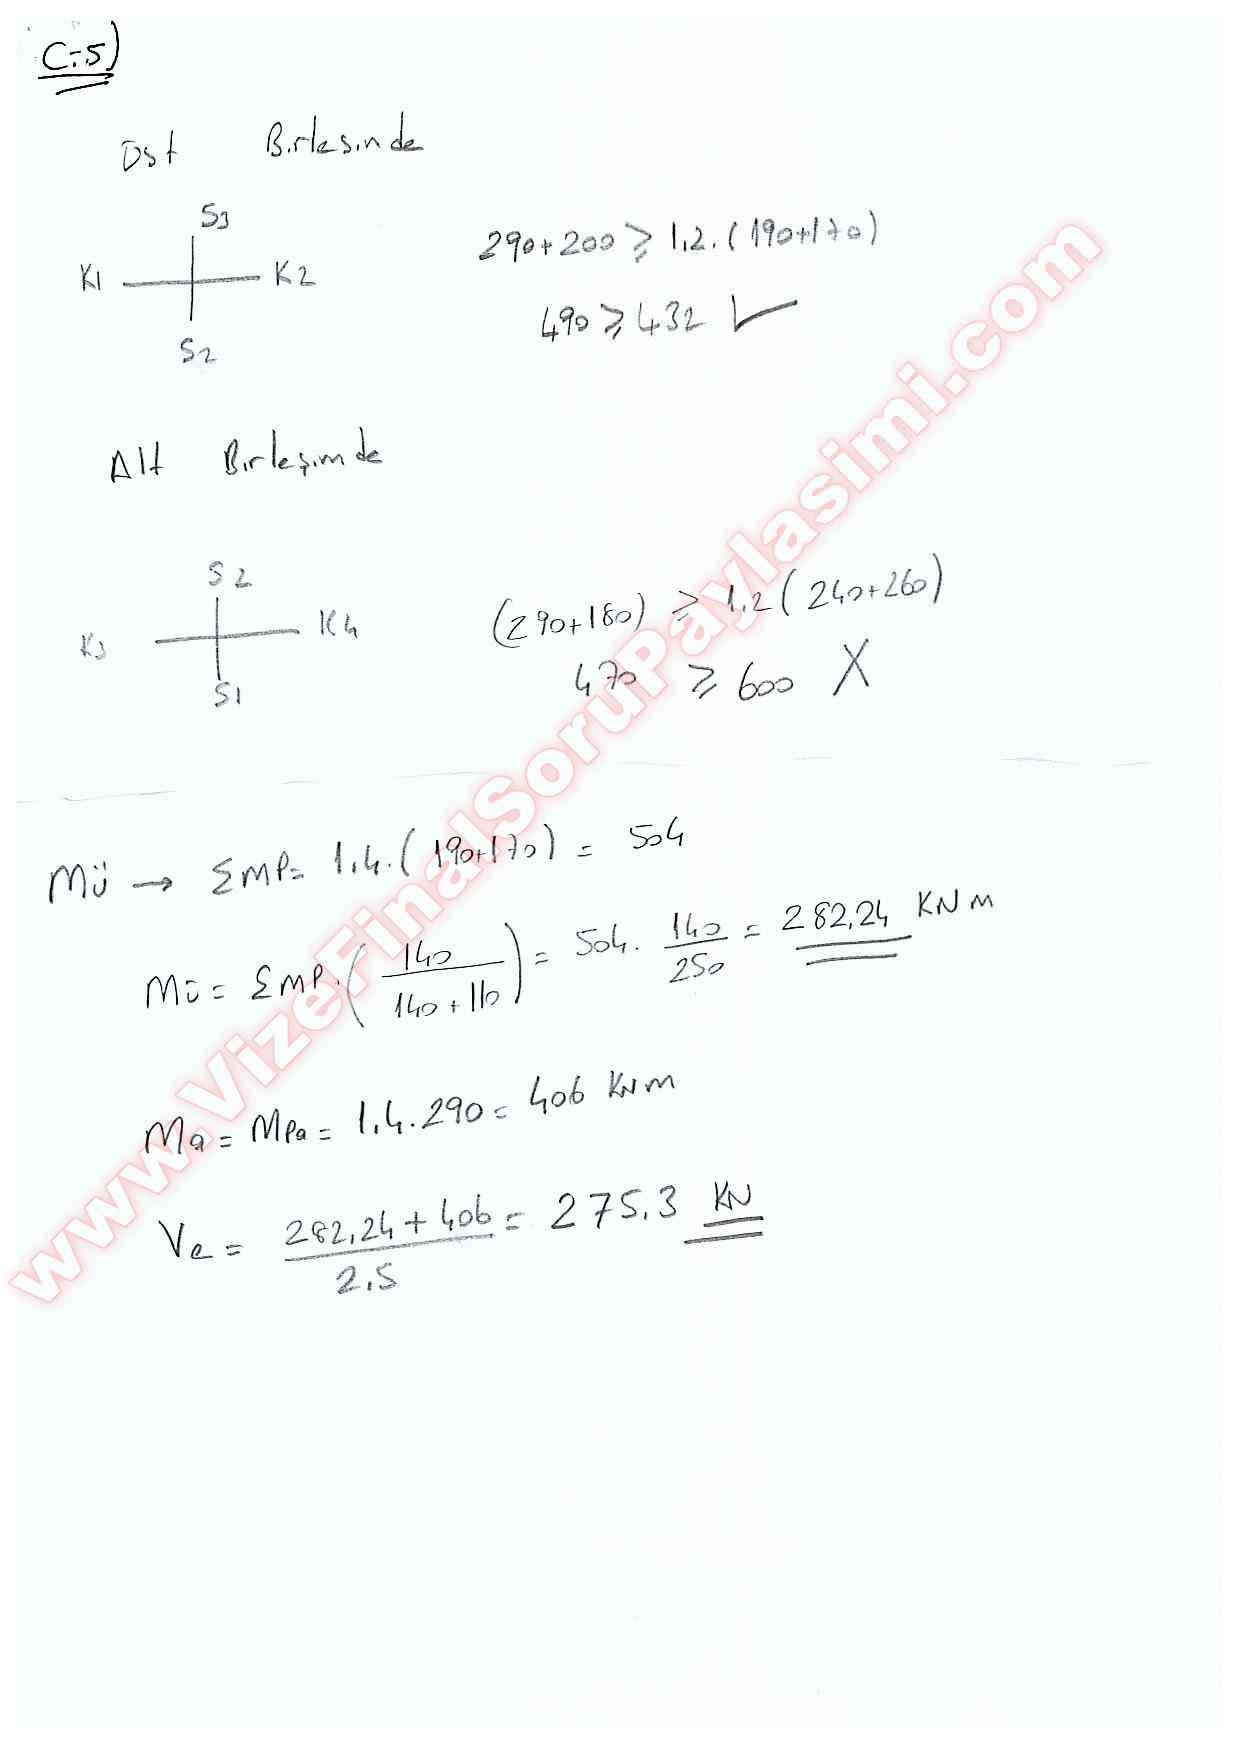 C-5)
Üst Birlesinde
S3
K1 K2
S2
290+200 ⩾ 1.2.(190+170)
490 ⩾ 432 ✓
Alt Birleşimde
S2
K3 K4
S1
(290+180) ⩾ 1.2(240+260)
470 ⩾ 600 X
Mü → ΣMP= 1.4.(190+170) = 504
Mü = ΣMP.(140/(140+110)) = 504. 140/250 = 282,24 KNm
Ma = MPa = 1.4.290 = 406 KNm
Ve = (282,24+406)/2.5 = 275.3 KN
www.VizeFinalSoruPaylasimi.com